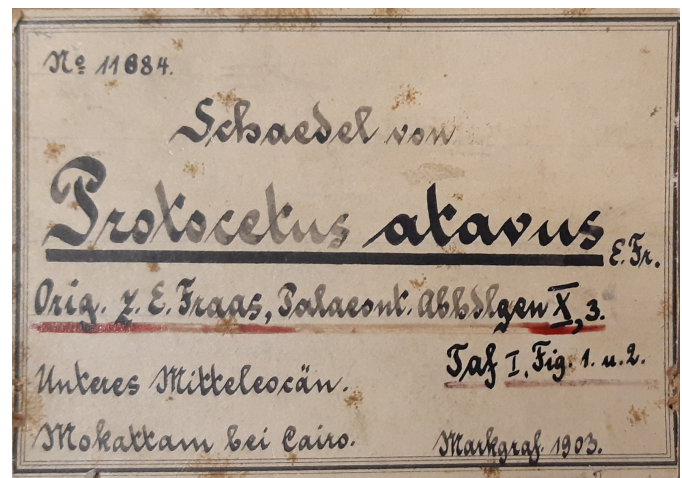 Nº 11084.
Schaedel von
Protocetus atavus E. Fr.
Orig. z. E. Fraas, Palaeont. Abhdlgen X, 3.
Taf I, Fig. 1. u. 2.
Unteres Mitteleocän.
Mokattam bei Cairo. Markgraf. 1903.